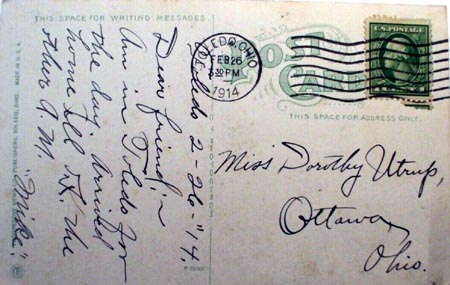 THIS SPACE FOR WRITING MESSAGES.
Toledo 2-26-"14.
Dear friend:
Am in Toledo for
the day. Arrived
home Ill the
other A.M.
"Mike".
POST
CARD
THIS SPACE FOR ADDRESS ONLY.
TOLEDO, OHIO
FEB 26
3 30 PM
1914
U.S. POSTAGE
Miss Dorothy Utrup,
Ottawa,
Ohio.
MADE IN U.S.A.
PUBLISHERS, TOLEDO, OHIO.